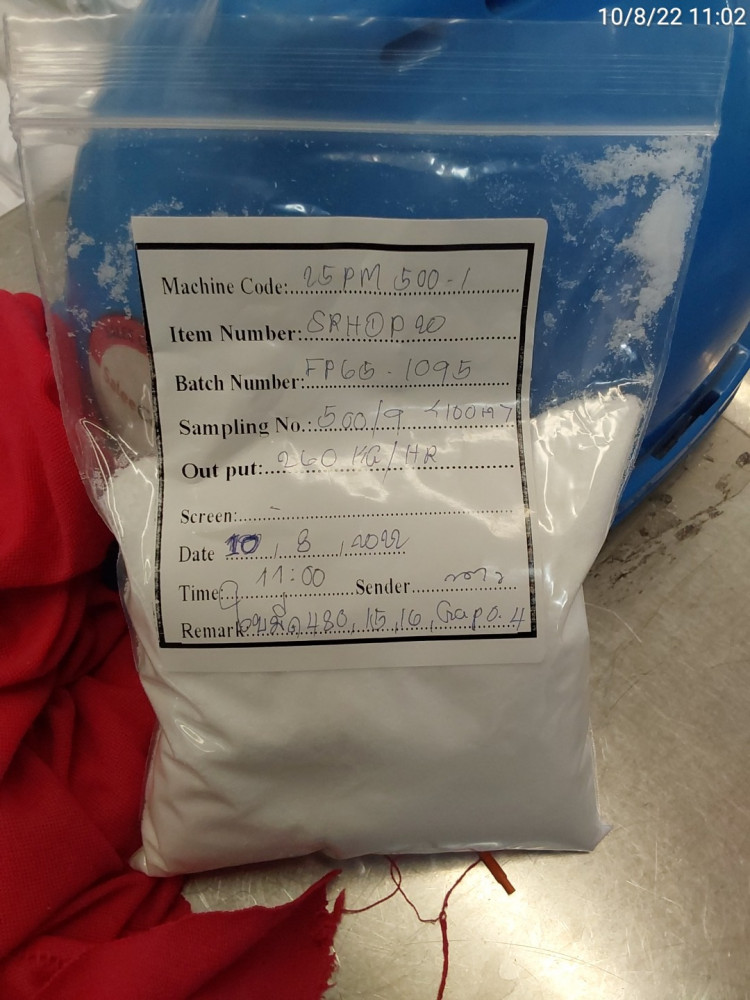 10/8/22 11:02
Machine Code: 25 PM 500-1
Item Number: SRHDP20
Batch Number: FP65-1095
Sampling No.: 500/9
Out put: 260 KG/HR
Screen: -
Date 10 / 8 / 2022
Time: 11:00 Sender
Remark: 480, 15, 16, Gap 0.4